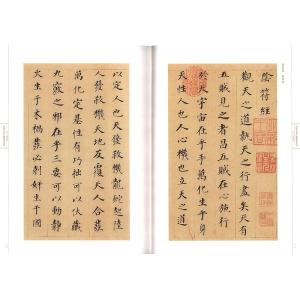 陰符經
觀天之道執天之行盡矣天有
五賊見之者昌五賊在心施行
於天宇宙在乎手萬化生乎身
天性人也人心機也立天之道
以定人也天發殺機龍蛇起陸
人發殺機天地反覆天人合發
萬化定基性有巧拙可以伏藏
九竅之邪在乎三要可以動靜
火生于木禍發必剋奸生于國